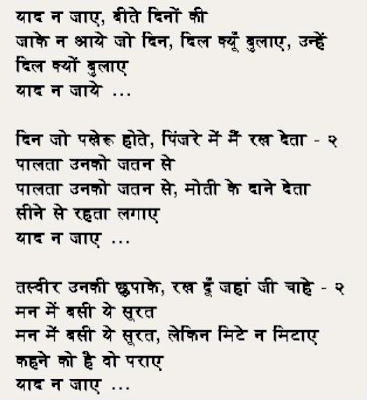 याद न जाए, बीते दिनों की
जाके न आये जो दिन, दिल क्यूँ बुलाए, उन्हें
दिल क्यों बुलाए
याद न जाये ...
दिन जो पखेरू होते, पिंजरे में मैं रख देता - २
पालता उनको जतन से
पालता उनको जतन से, मोती के दाने देता
सीने से रहता लगाए
याद न जाए ...
तस्वीर उनकी छुपाके, रख दूँ जहां जी चाहे - २
मन में बसी ये सूरत
मन में बसी ये सूरत, लेकिन मिटे न मिटाए
कहने को है वो पराए
याद न जाए ...